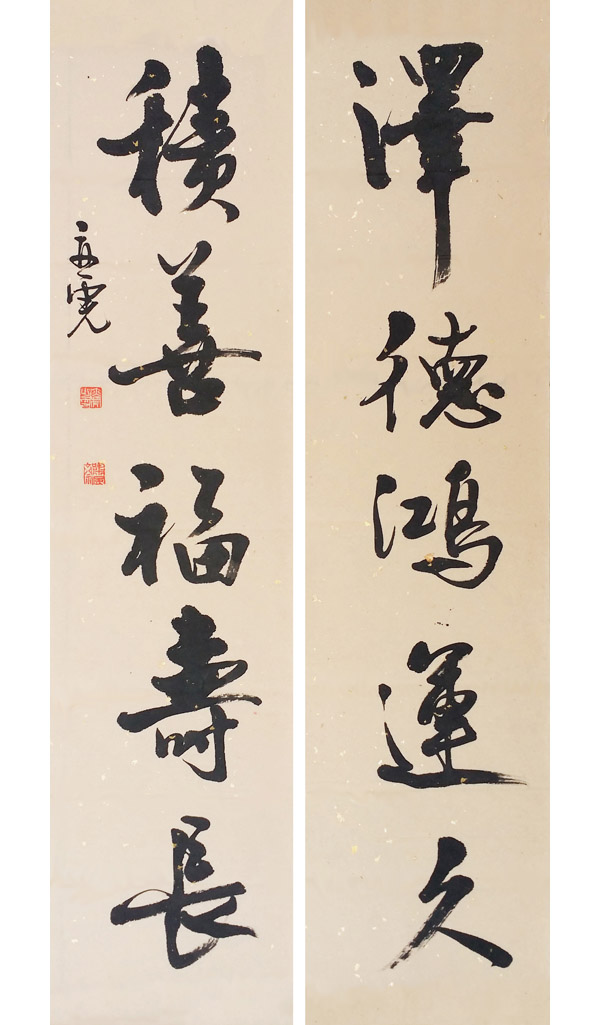 澤德鴻運久
積善福壽長